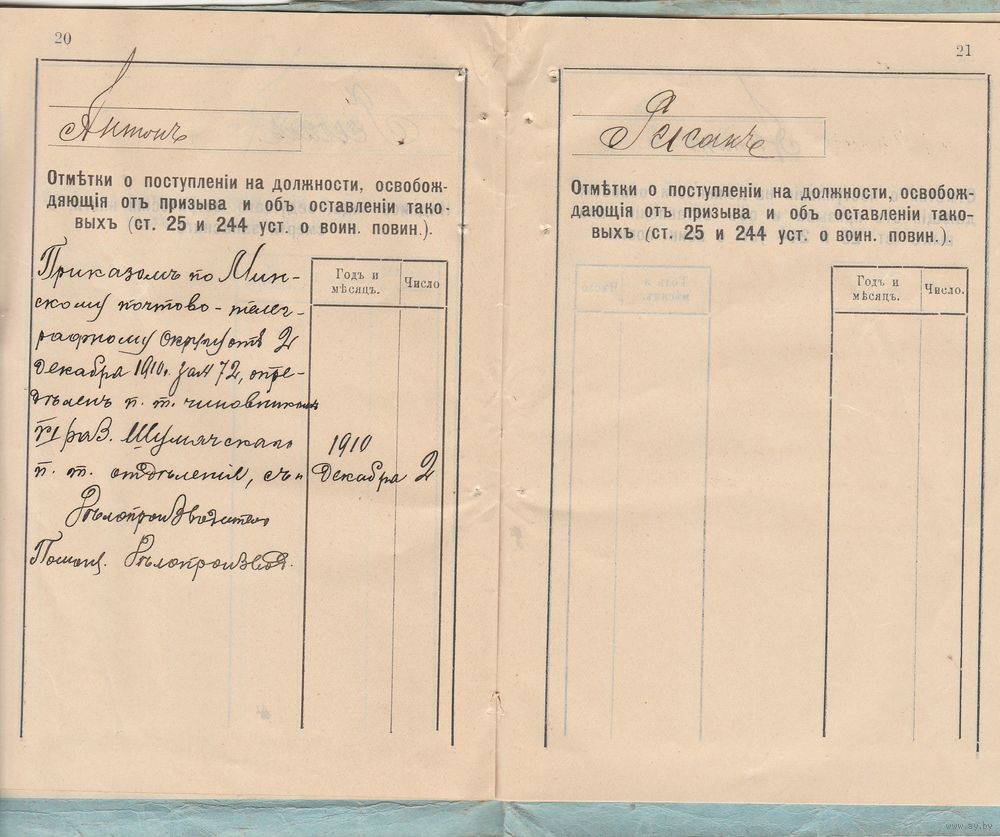 20
Антонъ
Отмѣтки о поступленіи на должности, освобож-
дающія отъ призыва и объ оставленіи тако-
выхъ (ст. 25 и 244 уст. о воин. повин.).
Годъ и
мѣсяцъ.
Число
Приказомъ по Мин-
скому почтово-телег-
рафному Округу отъ 2
Декабря 1910 г. за № 72, опре-
дѣленъ п. т. чиновникомъ
VI раз. Шумячскаго
п. т. отдѣленія, съ
1910
Декабря 2
Дѣлопроизводитель
Помощ. Дѣлопроизвод.
21
Отмѣтки о поступленіи на должности, освобож-
дающія отъ призыва и объ оставленіи тако-
выхъ (ст. 25 и 244 уст. о воин. повин.).
Годъ и
мѣсяцъ.
Число.
www.ay.by